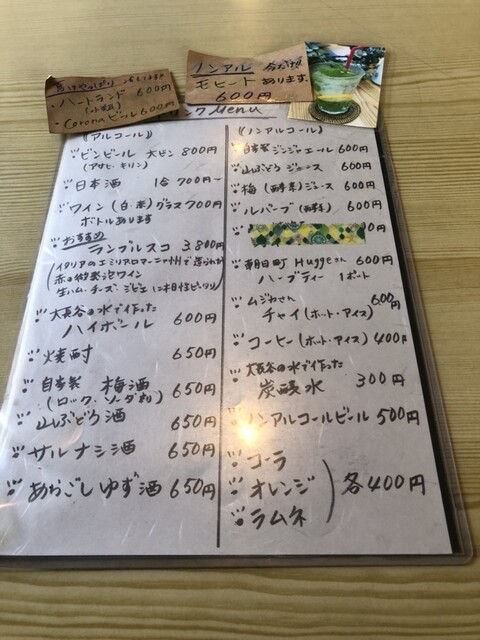 ・ハートランド 600円
(小瓶)
・Coronaビール 600円
ノンアル
モヒート あります。
600円
Menu
《アルコール》
ビンビール 大ビン 800円
(アサヒ・キリン)
日本酒 1合 700円～
ワイン(白・赤)グラス 700円
ボトルあります
おすすめ
ランブレスコ 3,800円
(イタリアのエミリアロマーニャ州で造られた
赤の微発泡ワイン
生ハム・チーズ・ジビエに相性ピッタリ)
大長谷の水で作った
ハイボール 600円
焼酎 650円
自家製 梅酒 650円
(ロック、ソーダ割)
山ぶどう酒 650円
サルナシ酒 650円
あらごしゆず酒 650円
《ノンアルコール》
自家製 ジンジャエール 600円
山ぶどうジュース 600円
梅(自家製)ジュース 600円
ルバーブ(自家製) 600円
0円
朝日町 Hyggeさん 600円
ハーブティー 1ポート
ムジカさん 600円
チャイ(ホット・アイス)
コーヒー(ホット・アイス) 400円
大長谷の水で作った
炭酸水 300円
ノンアルコールビール 500円
コーラ
オレンジ 各400円
ラムネ